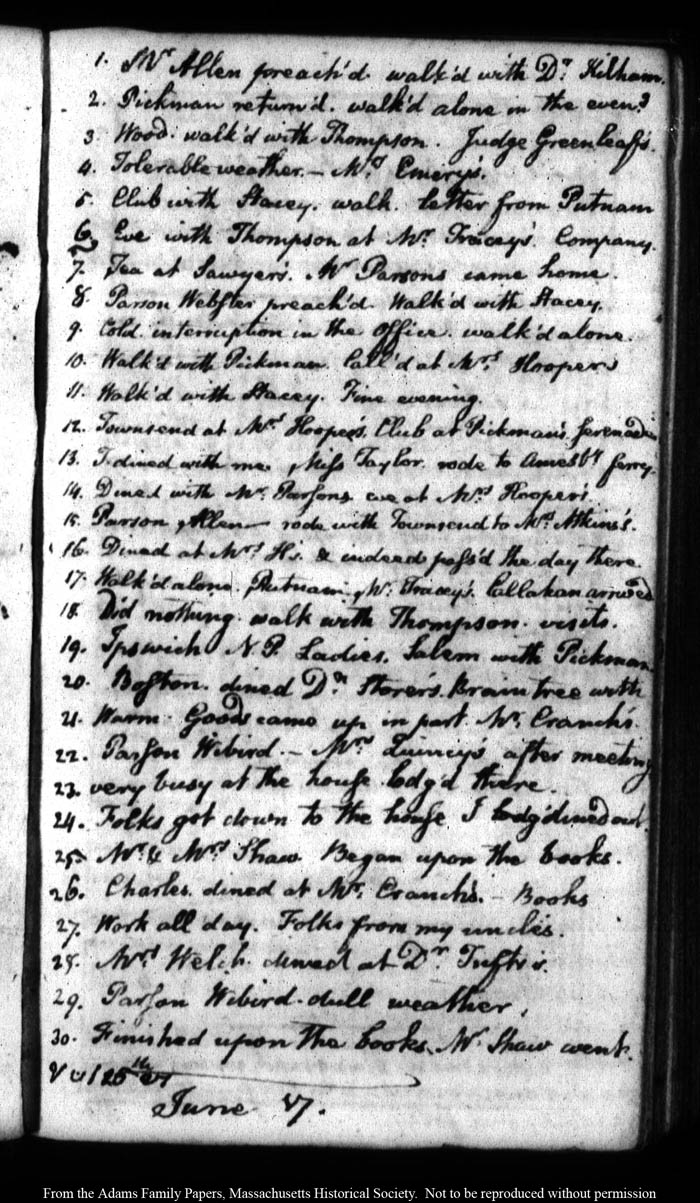 1. Mr. Allen preach'd. walk'd with Dr. Kilham.
2. Pickman return'd. walk'd alone in the even.g
3. Wood. walk'd with Thompson. Judge Greenleaf's.
4. Tolerable weather. — Mrs. Emery's.
5. Club with Stacey. walk. letter from Putnam
6. Eve with Thompson at Mr. Tracey's. Company.
7. Tea at Sawyer's. Mr. Parsons came home.
8. Parson Webster preach'd. Walk'd with Stacey.
9. Cold. interruption in the office. walk'd alone.
10. Walk'd with Pickman. Call'd at Mrs. Hooper's
11. Walk'd with Stacey. Fine evening.
12. Townsend at Mrs. Hooper's. Club at Pickman's. serenading
13. T. dined with me. Miss Taylor. rode to Amesby. ferry.
14. Dined with Mr. Parsons. eve at Mrs. Hooper's.
15. Parson Allen — rode with Townsend to Mrs. Atkins's.
16. Dined at Mrs. H's. & indeed pass'd the day there.
17. Walk'd alone. Putnam. Mr. Tracey's. Callahan arrived
18. Did nothing. walk with Thompson. visits.
19. Ipswich N.P. Ladies. Salem with Pickman.
20. Boston. dined Dr. Storer's. Braintree with
21. Warm. Goods came up in part. Mr. Cranch's.
22. Parson Wibird. — Mrs. Quincy's after meeting
23. very busy at the house. lodg'd there.
24. Folks got down to the house. I lodg'd. dined out.
25. Mr. & Mrs. Shaw. Began upon the books.
26. Charles. dined at Mr. Cranch's. — Books
27. Work all day. Folks from my uncle's.
28. Mrs. Welch. dined at Dr. Tufts's.
29. Parson Wibird. dull weather.
30. Finished upon the books. Mr. Shaw went.
June 87.
From the Adams Family Papers, Massachusetts Historical Society. Not to be reproduced without permission